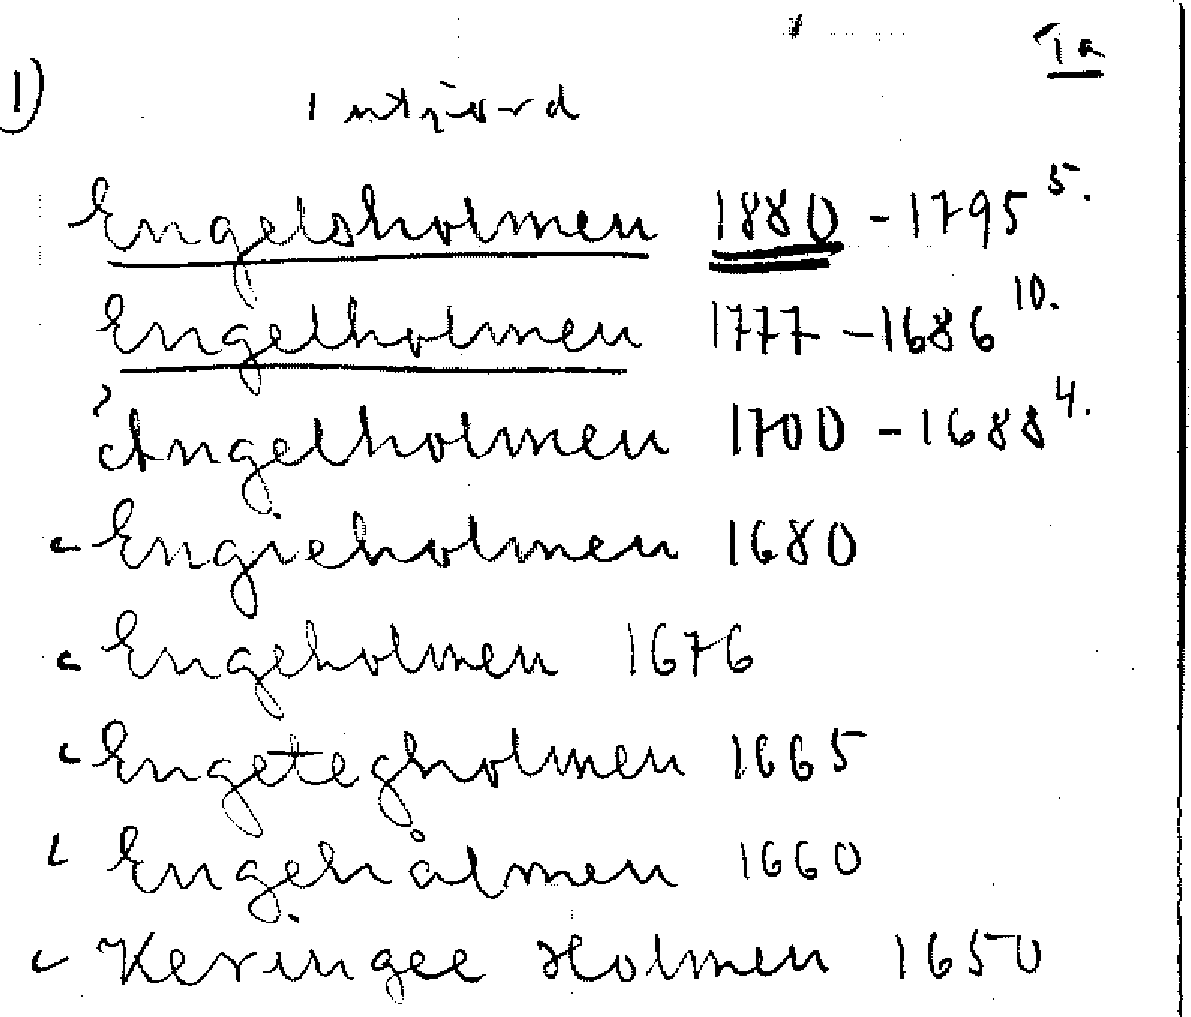 Ta
1) Intjord
Engelsholmen 1880 - 1795 5.
Engelholmen 1777 - 1686 10.
Angelholmen 1700 - 1688 4.
Engieholmen 1680
Engeholmen 1676
Engetegholmen 1665
Engehålmen 1660
Keringee Holmen 1650